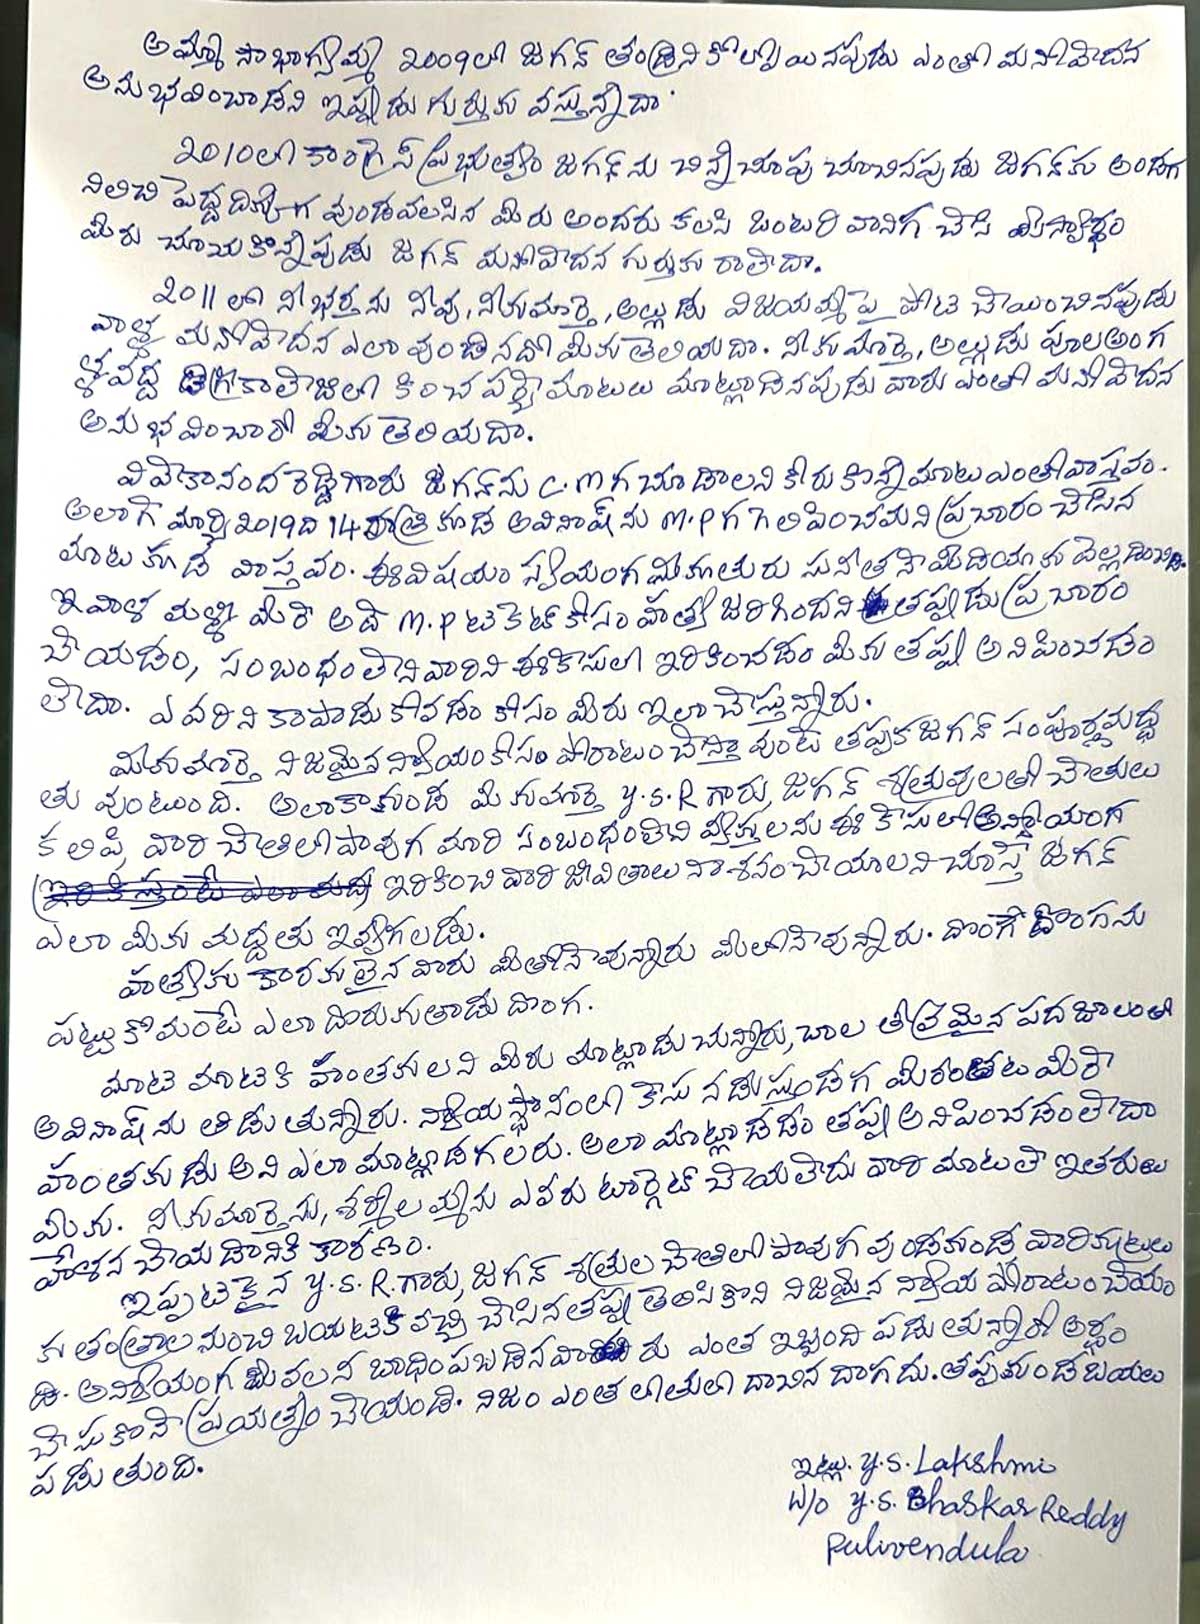 అమ్మా సౌభాగ్యమ్మ 2009లో జగన్ తండ్రిని కోల్పోయినపుడు ఎంతో మనోవేదన
అనుభవించాడని ఇప్పుడు గుర్తుకు వస్తున్నదా.
2010లో కాంగ్రెస్ ప్రభుత్వం జగన్‌ను చిన్నచూపు చూచినపుడు జగన్‌కు అండగ
నిలిచి పెద్ద దిక్కుగ వుండవలసిన మీరు అందరు కలసి ఒంటరి వానిగ చేసి మీ స్వార్థం
మీరు చూచుకొన్నపుడు జగన్ మనోవేదన గుర్తుకు రాలేదా.
2011 లో నీ భర్తను నీవు, నీకుమార్తె, అల్లుడు విజయమ్మపై పోటి చేయించినపుడు
వాళ్ల మనోవేదన ఎలా వుండినదో మీకు తెలియదా. నీకుమార్తె, అల్లుడు పూలఅంగ
ళ్లవద్ద కాలేజిలో కించ పర్చె మాటలు మాట్లాడినపుడు వారు ఎంతో మనోవేదన
అనుభవించారో మీకు తెలియదా.
వివేకానందరెడ్డిగారు జగన్‌ను C.M గ చూడాలని కోరుకొన్నమాట ఎంతో వాస్తవం.
అలాగే మార్చి 2019ది 14 రాత్రి కూడ అవినాష్‌ను M.P గ గెలిపించమని ప్రచారం చేసిన
మాట కూడ వాస్తవం. ఈవిషయం స్వయంగ మీకూతురు సునీతనే మీడియాకు వెల్లడించింది.
ఇవాళ మళ్ళి మీరే అదే M.P టికెట్ కోసం హత్య జరిగిందని తప్పుడు ప్రచారం
చేయడం, సంబంధంలేనివారిని ఈకేసులో ఇరికించడం మీకు తప్పు అనిపించడం
లేదా. ఎవరిని కాపాడుకోవడం కోసం మీరు ఇలా చేస్తున్నారు.
మీకుమార్తె నిజమైన న్యాయంకోసం పోరాటం చేస్తూ వుంటే తప్పక జగన్ సంపూర్ణమద్ద
తు వుంటుంది. అలాకాకుండ మీకుమార్తె Y.S.R గారు, జగన్ శత్రువులతో చేతులు
కలిపి, వారి చేతిలో పావుగ మారి సంబంధంలేని వ్యక్తులను ఈ కేసులో అన్యాయంగ
ఇరికించి వారి జీవితాలు నాశనంచేయాలని చూస్తే జగన్
ఎలా మీకు మద్దతు ఇవ్వగలడు.
హత్యకు కారకులైన వారు మీతోనేవున్నారు మీలోనేవున్నారు. దొంగే దొంగను
పట్టుకోమంటే ఎలా దొరుకుతాడు దొంగ.
మాటి మాటికి హంతకులని మీరు మాట్లాడుచున్నారు, చాల తీవ్రమైన పదజాలంతో
అవినాష్‌ను తిడుతున్నారు. న్యాయస్థానంలో కేసు నడుస్తుండగ మీరంతట మీరే
హంతకుడు అని ఎలా మాట్లాడగలరు. అలా మాట్లాడడం తప్పు అనిపించడంలేదా
మీకు. నీకుమార్తెను, శర్మిలమ్మను ఎవరు టార్గెట్ చేయలేదు వారి మాటలే ఇతరులు
హేళన చేయడానికి కారణం.
ఇప్పటికైన Y.S.R.గారు, జగన్ శత్రుల చేతిలో పావుగ వుండకుండ వారికుట్రలు
కుతంత్రాలనుంచి బయటికి వచ్చి చేసినతప్పు తెలుసుకొని నిజమైన న్యాయ పోరాటం చేయం
డి. అన్యాయంగ మీవలన బాధింపబడినవారు ఎంత ఇబ్బంది పడుతున్నారో అర్థం
చేసుకొనే ప్రయత్నం చేయండి. నిజం ఎంత లోతులో దాచిన దాగదు. తప్పకుండ బయట
పడుతుంది.
ఇట్లు. Y.S. Lakshmi
W/o Y.S. Bhaskar Reddy
Pulivendula